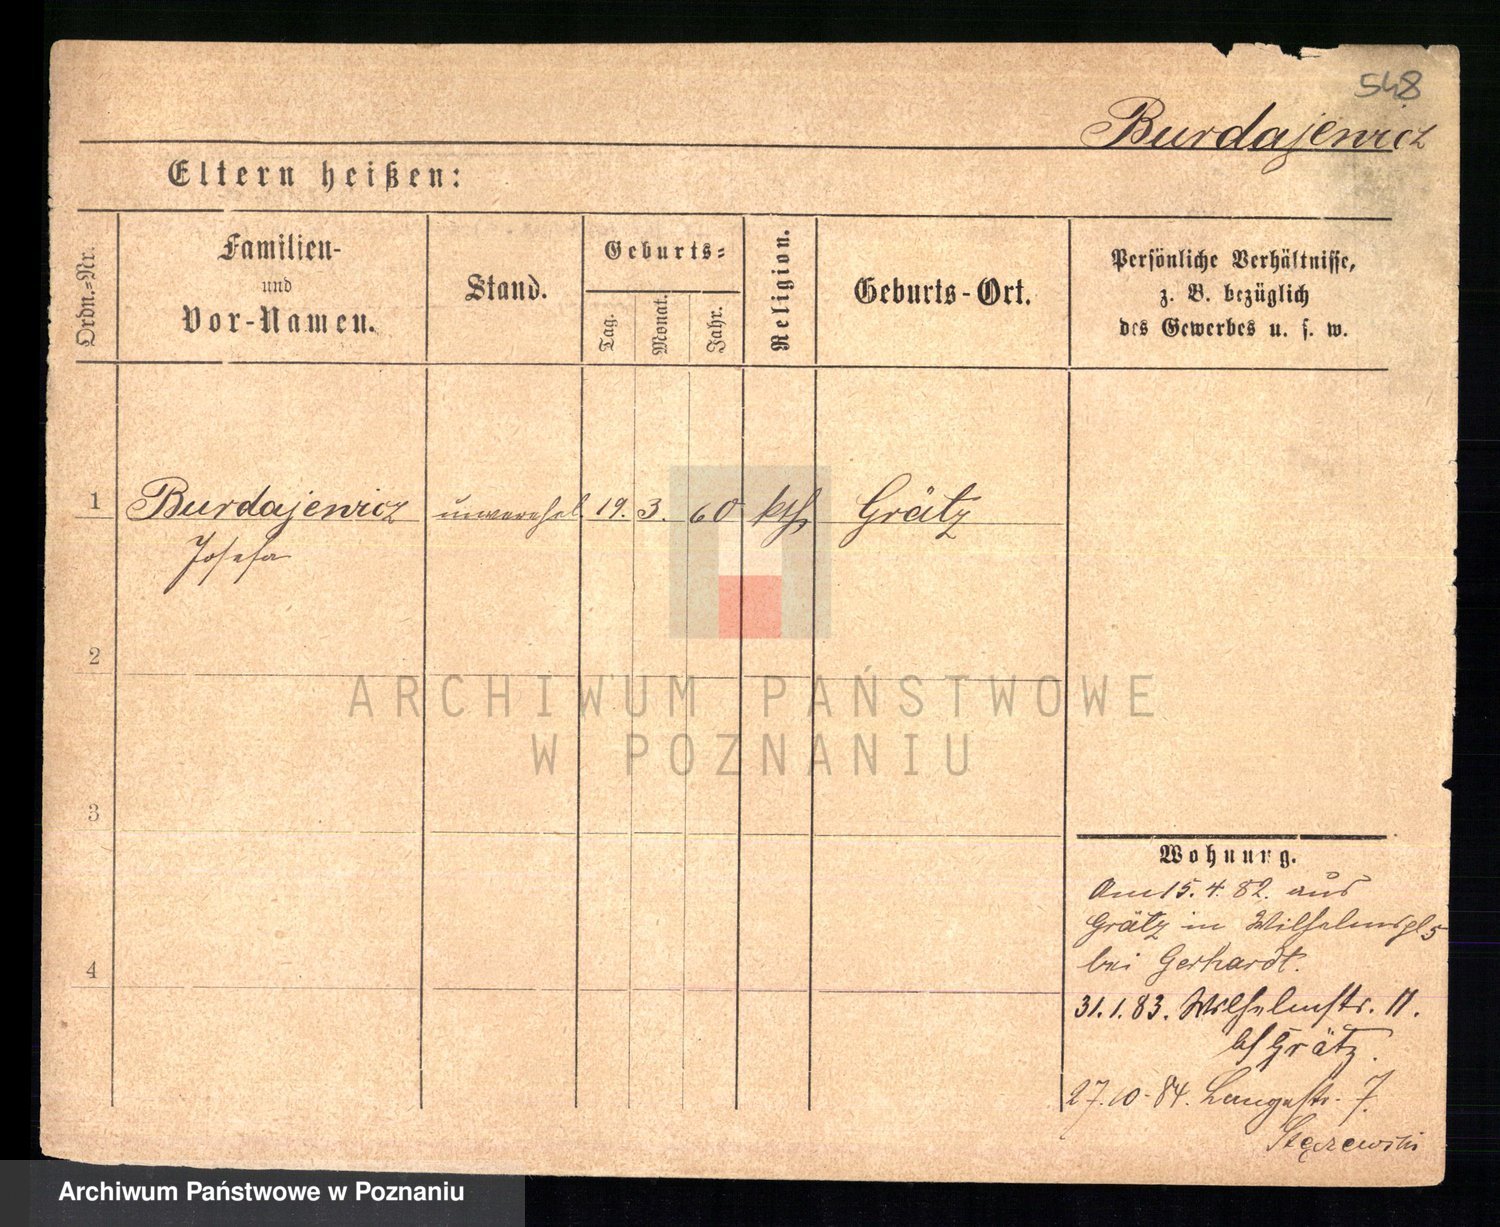 548
Burdajewicz
Eltern heißen:
Ordn.-Nr.
Familien-
und
Vor-Namen.
Stand.
Geburts-
Tag.
Monat.
Jahr.
Religion.
Geburts-Ort.
Persönliche Verhältnisse,
z. B. bezüglich
des Gewerbes u. s. w.
1 Burdajewicz unverehel. 19. 3. 60 kth Grätz
Josefa
2
3
4
ARCHIWUM PAŃSTWOWE
W POZNANIU
Wohnung.
Am 15. 4. 82. aus
Grätz in Wilhelmspl 5
bei Gerhardt.
31. 1. 83. Wilhelmstr. 11.
Grätz.
27. 10. 84. Langestr. 7.
Stęszewski
Archiwum Państwowe w Poznaniu